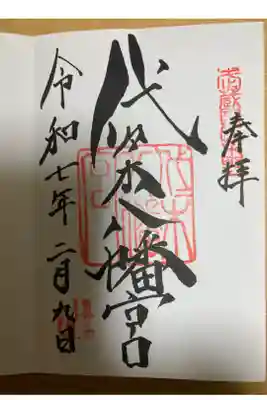 奉拝
代々木八幡宮
令和七年二月九日